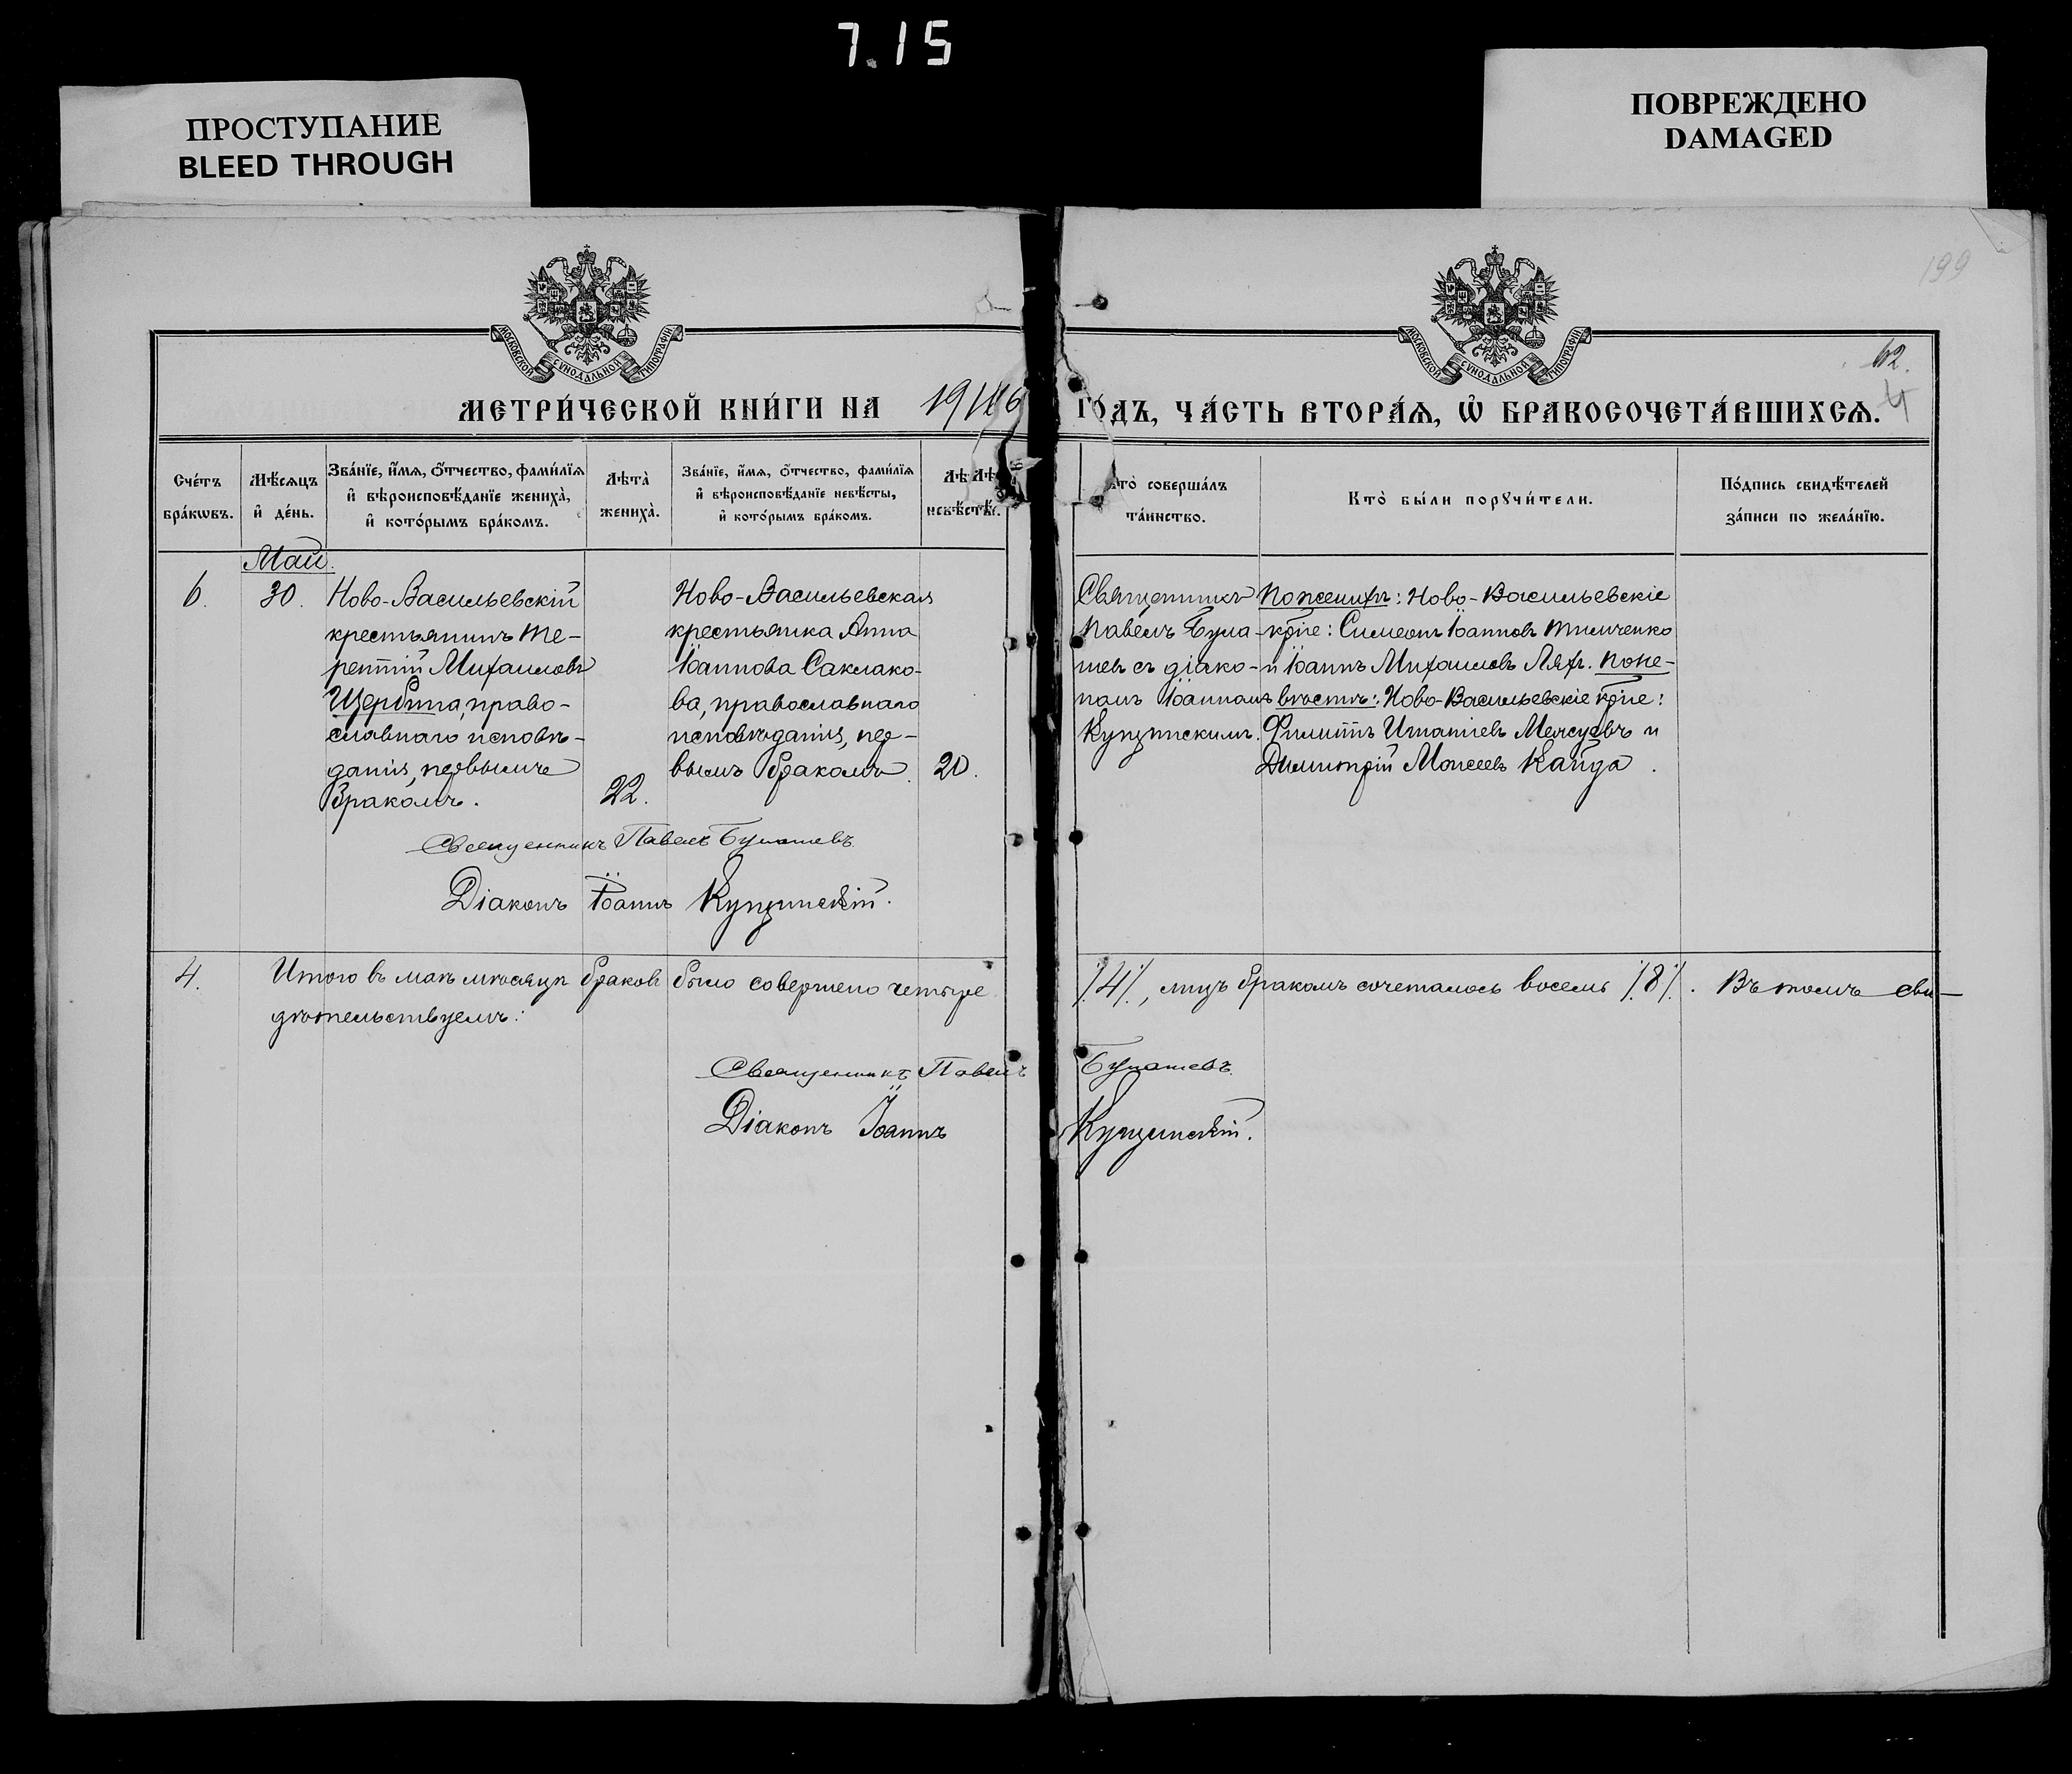 7.15
ПРОСТУПАНИЕ
BLEED THROUGH
ПОВРЕЖДЕНО
DAMAGED
199
МОСКОВСКОЙ СѴНОДАЛЬНОЙ ТИПОГРАФІИ
МОСКОВСКОЙ СѴНОДАЛЬНОЙ ТИПОГРАФІИ
62.
МЕТРИ́ЧЕСКОЙ КНИ́ГИ НА 1916 ГО́ДЪ, ЧА́СТЬ ВТОРА́Я, Ѡ҆ БРАКОСОЧЕТА́ВШИХСЯ. 4
Сче́тъ
бра́кѡвъ.
Мѣ́сяцъ
и҆ де́нь.
Зва́нїе, и҆́мя, ѻ҆́тчество, фами́лїя
и҆ вѣроисповѣ́данїе жениха̀,
и҆ кото́рымъ бра́комъ.
Лѣта̀
жениха̀.
Зва́нїе, и҆́мя, ѻ҆́тчество, фами́лїя
и҆ вѣроисповѣ́данїе невѣ́сты,
и҆ кото́рымъ бра́комъ.
Кто̀ соверша́лъ
та́инство.
Кто̀ бы́ли порꙋчи́тели.
По́дпись свидѣ́телей
за́писи по жела́нїю.
Май.
6.
30.
Ново-Васильевскій
крестьянинъ Те-
рентій Михаиловъ
Щербина, право-
славнаго исповѣ-
данія, первымъ
бракомъ.
22.
Ново-Васильевская
крестьянка Анна
Іоаннова Саклако-
ва, православнаго
исповѣданія, пер-
вымъ бракомъ.
20.
Священникъ
Павелъ Була-
шевъ съ діако-
номъ Іоанномъ
Кунцинскимъ.
По женихѣ: Ново-Васильевскіе
крѣе: Симеонъ Іоанновъ Тимченко
и Іоаннъ Михаиловъ Ляхъ. По не-
вѣстѣ: Ново-Васильевскіе крѣе:
Филиппъ Игнатіевъ Межуевъ и
Димитрій Моисеевъ Кайда.
Священникъ Павелъ Булашевъ
Діаконъ Іоаннъ Кунцинскій.
4.
Итого въ маѣ мѣсяцѣ браковъ было совершено четыре /4/, лицъ бракомъ сочеталось восемь /8/. Въ томъ сви-
дѣтельствуемъ:
Священникъ Павелъ Булашевъ.
Діаконъ Іоаннъ Кунцинскій.